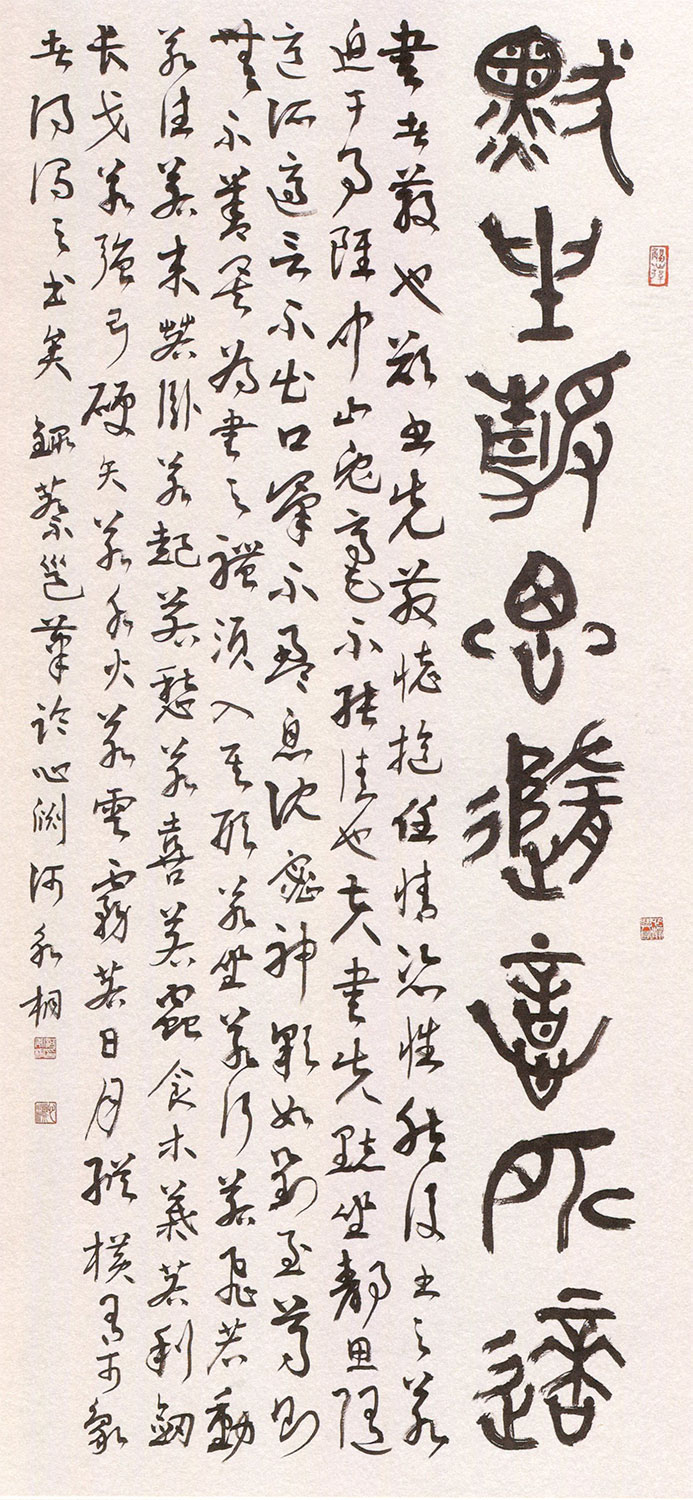 默坐靜思隨意所適
書者散也欲書先散懷抱任情恣性然後書之若
迫于事雖中山兔毫不能佳也夫書先默坐靜思隨
意所適言不出口氣不盈息沈密神彩如對至尊則
無不善矣為書之體須入其形若坐若行若飛若動
若往若来若臥若起若愁若喜若蟲食木葉若利劍
長戈若強弓硬矢若水火若雲霧若日月縱橫有可象
者得謂之書矣 錄蔡邕筆論心渊河永桐